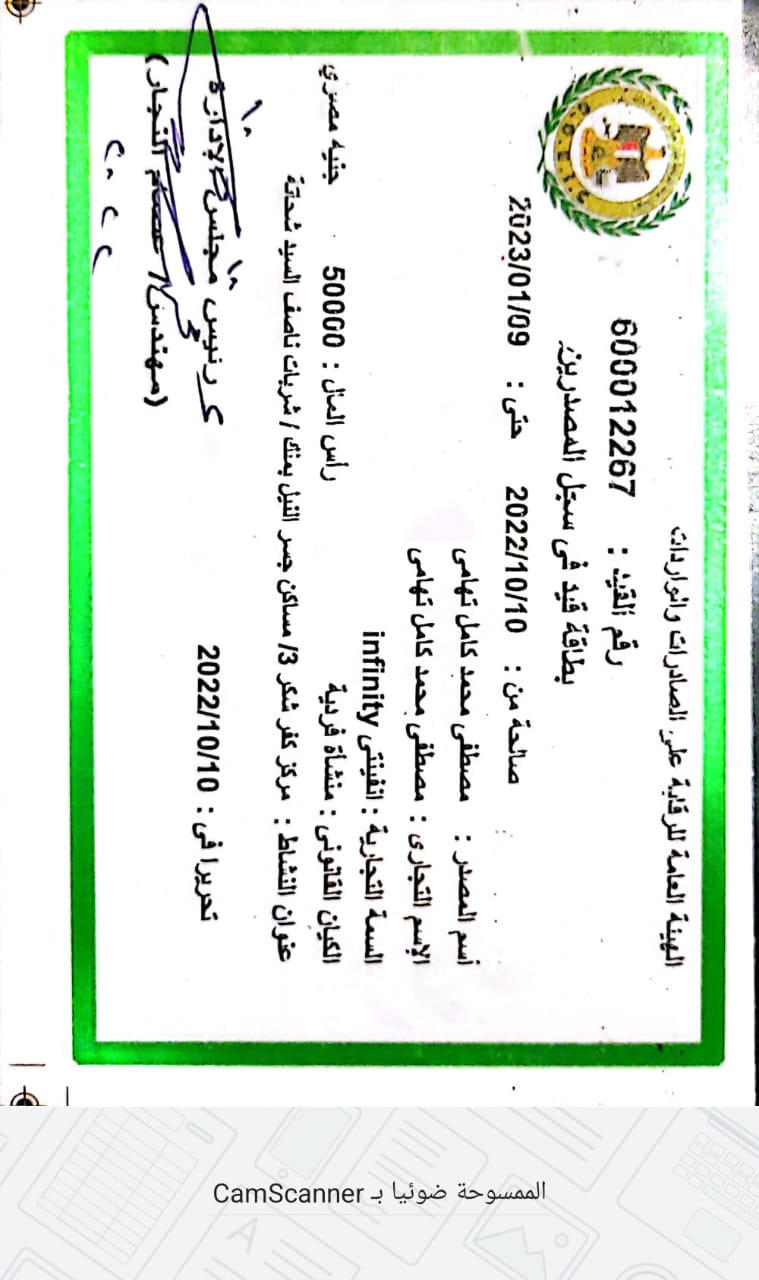 الهيئة العامة للرقابة على الصادرات والواردات
رقم القيد : 600012267
بطاقة قيد فى سجل المصدرين
صالحة من : 2022/10/10 حتى : 2023/01/09
أسم المصدر : مصطفى محمد كامل تهامى
الإسم التجارى : مصطفى محمد كامل تهامى
السمة التجارية : انفينتى infinity
الكيان القانونى : منشأة فردية رأس المال : 50000 جنيه مصري
عنوان النشاط : مركز كفر شكر 3/ مساكن جسر النيل بملك / شربات ناصف السيد شحاتة
تحريرا فى : 2022/10/10
رئيس مجلس الإدارة
(مهندس/ عصام النجار)
الممسوحة ضوئيا بـ CamScanner